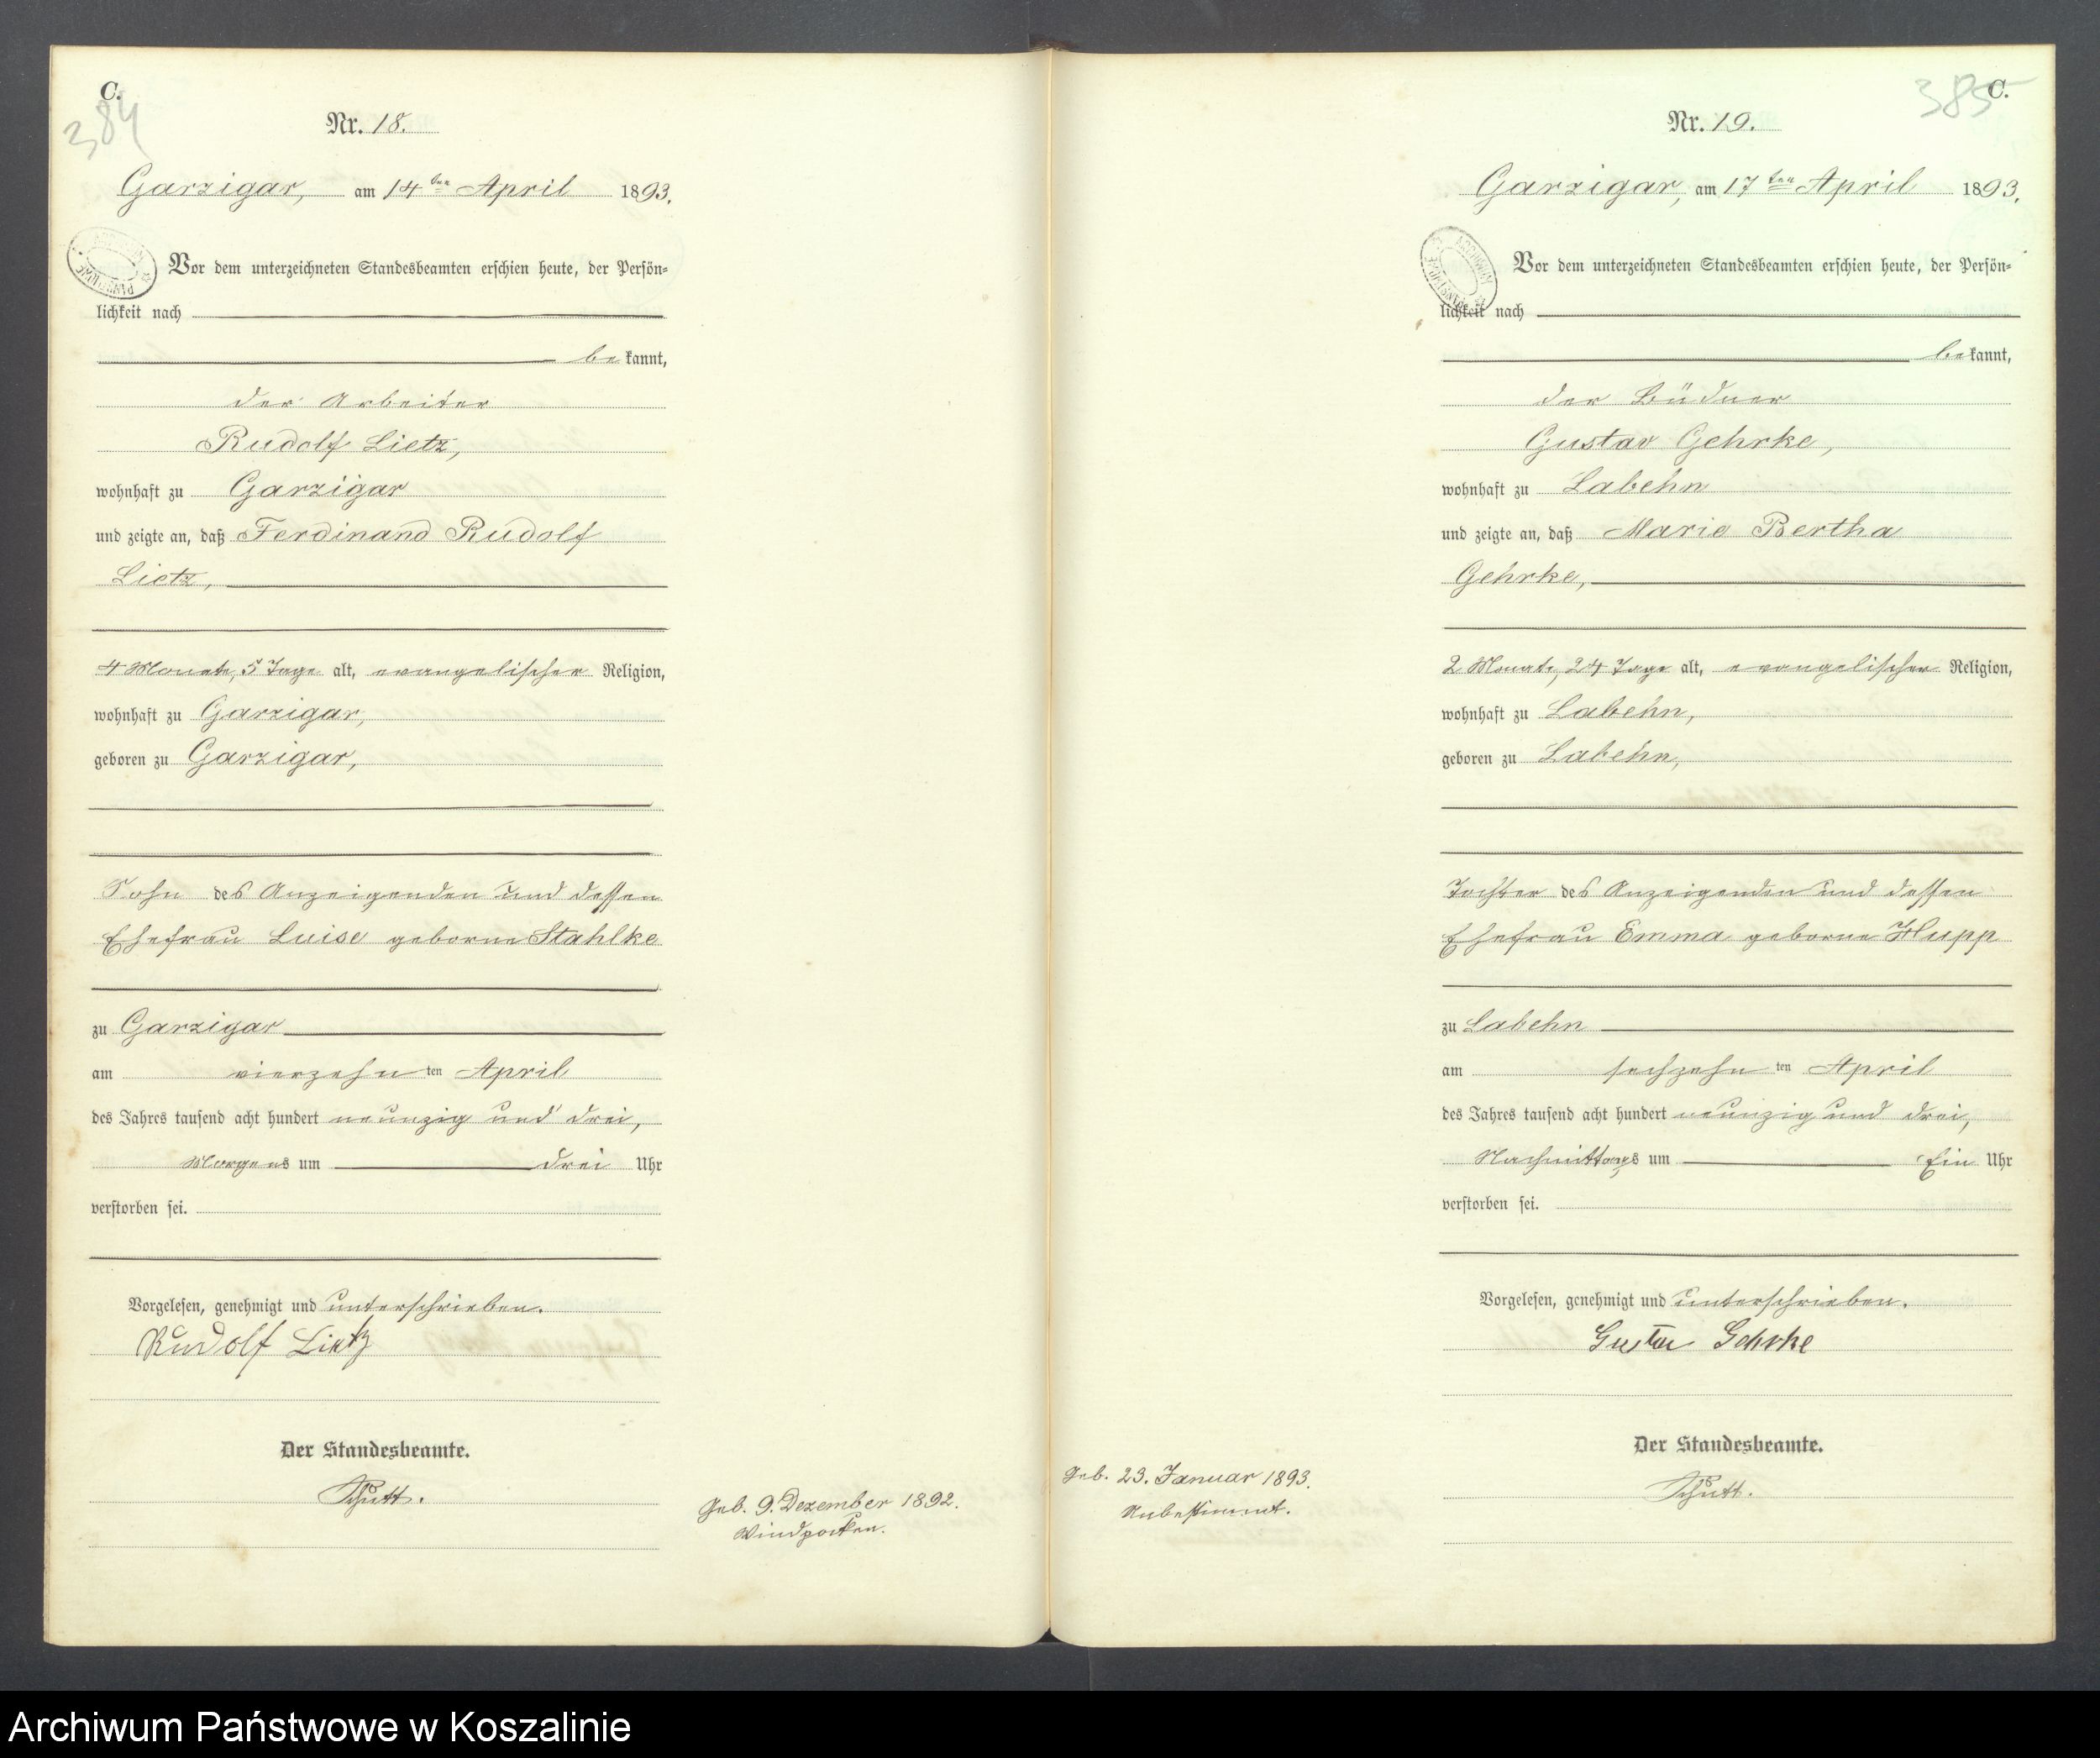 C.
384
Nr. 18.
Garzigar, am 14ten April 1893.
Vor dem unterzeichneten Standesbeamten erschien heute, der Persön-
lichkeit nach
be kannt,
der Arbeiter
Rudolf Lietz,
wohnhaft zu Garzigar
und zeigte an, daß Ferdinand Rudolf
Lietz,
4 Monate, 5 Tage alt, evangelischer Religion,
wohnhaft zu Garzigar,
geboren zu Garzigar,
Sohn des Anzeigenden und dessen
Ehefrau Luise geborne Stahlke
zu Garzigar
am vierzehn ten April
des Jahres tausend acht hundert neunzig und drei,
Morgens um drei Uhr
verstorben sei.
Vorgelesen, genehmigt und unterschrieben.
Rudolf Lietz
Der Standesbeamte.
Schutt.
Geb. 9. Dezember 1892.
Windpocken.
385
C.
Nr. 19.
Garzigar, am 17ten April 1893.
Vor dem unterzeichneten Standesbeamten erschien heute, der Persön-
lichkeit nach
be kannt,
der Büdner
Gustav Gehrke,
wohnhaft zu Labehn
und zeigte an, daß Marie Bertha
Gehrke,
2 Monate, 24 Tage alt, evangelischer Religion,
wohnhaft zu Labehn,
geboren zu Labehn,
Tochter des Anzeigenden und dessen
Ehefrau Emma geborne Hupp
zu Labehn
am sechzehn ten April
des Jahres tausend acht hundert neunzig und drei,
Nachmittags um Ein Uhr
verstorben sei.
Vorgelesen, genehmigt und unterschrieben.
Gustav Gehrke
Der Standesbeamte.
Schutt.
Geb. 23. Januar 1893.
Unbestimmt.
Archiwum Państwowe w Koszalinie